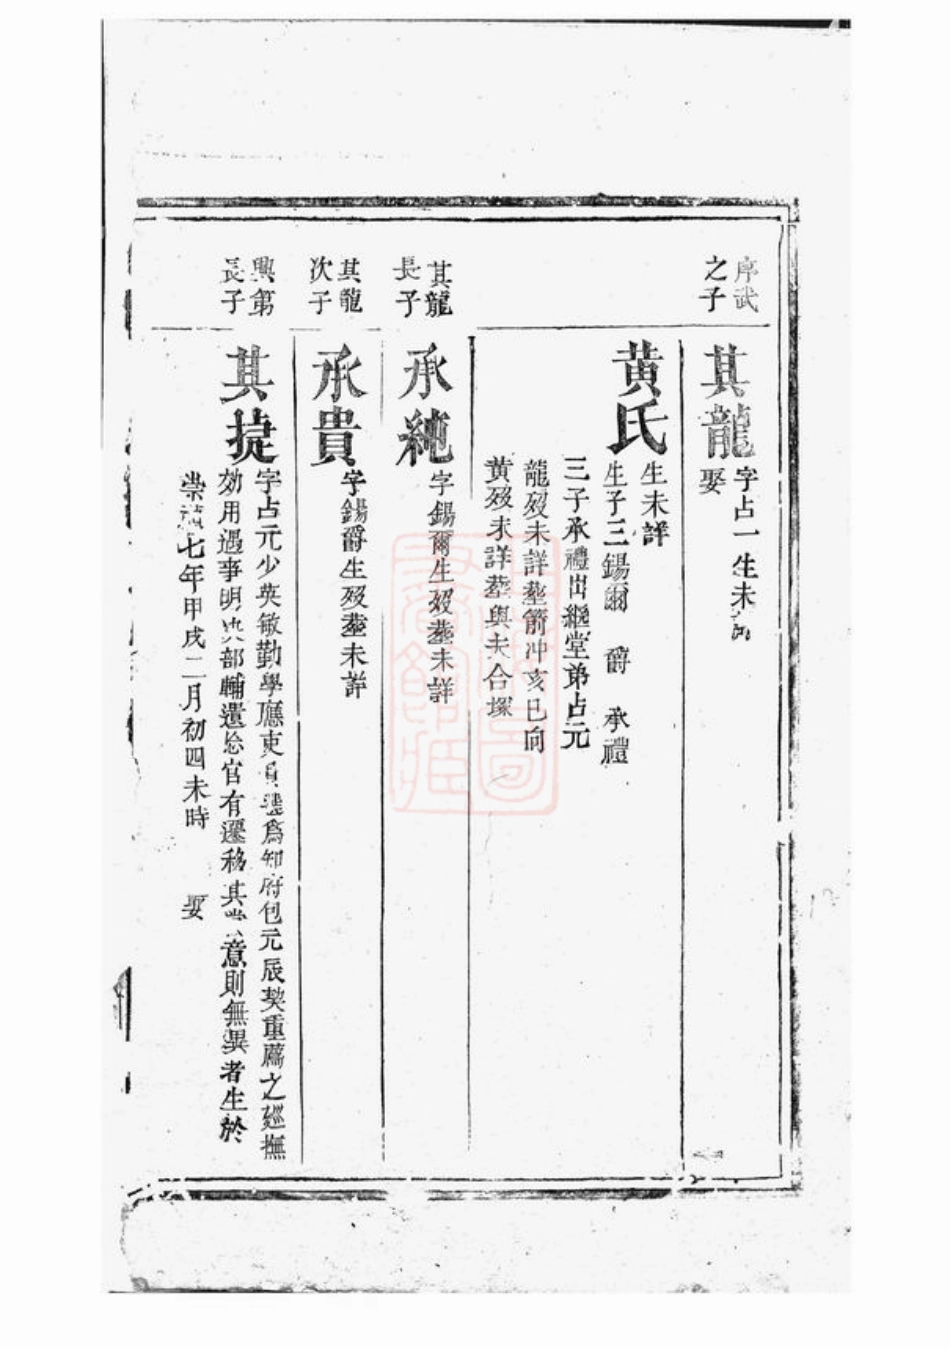 序武
之子
其龍
字占一生未
娶
黄氏
生未詳
生子三錫爾 爵 承禮
三子承禮出繼堂弟占元
龍歿未詳塟箭冲亥巳向
黄歿未詳塟與夫合塚
其龍
長子
承純
字錫爾生歿塟未詳
其龍
次子
承貴
字錫爵生歿塟未詳
興第
長子
其捷
字占元少英敏勤學應吏員 爲知府包元辰契重薦之廵撫
効用遇事明决部輔遺 官有遷移其 意則無異者生於
崇禎七年甲戌二月初四未時 娶